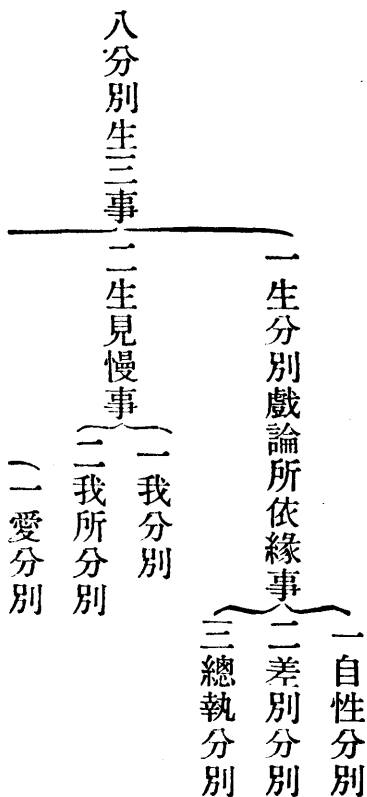 八分別生三事
一生分別戲論所依緣事
一自性分別
二差別分別
三總執分別
二生見慢事
一我分別
二我所分別
一愛分別